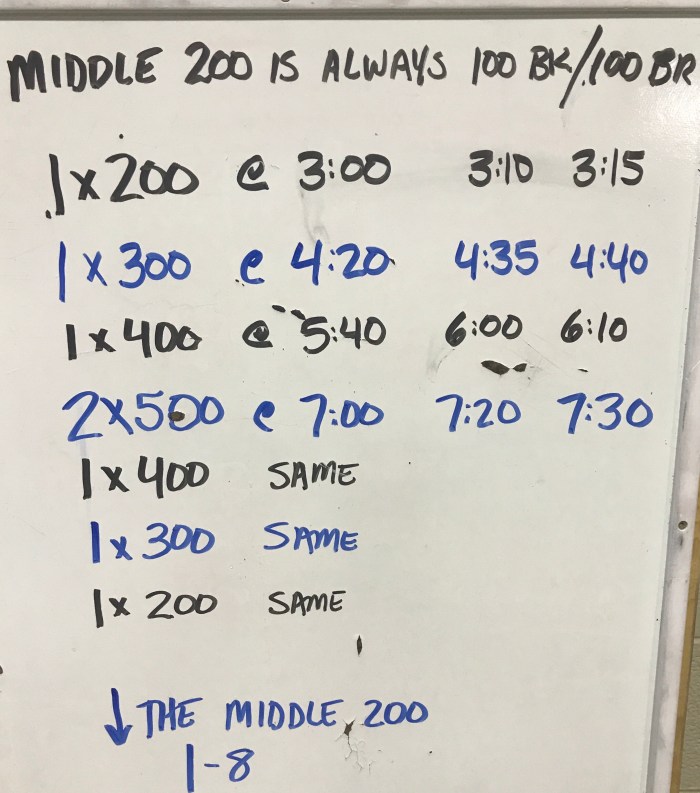 MIDDLE 200 IS ALWAYS 100 BK/100 BR
1x200 @ 3:00 3:10 3:15
1x300 @ 4:20 4:35 4:40
1x400 @ 5:40 6:00 6:10
2x500 @ 7:00 7:20 7:30
1x400 SAME
1x300 SAME
1x200 SAME
↓ THE MIDDLE 200
1-8